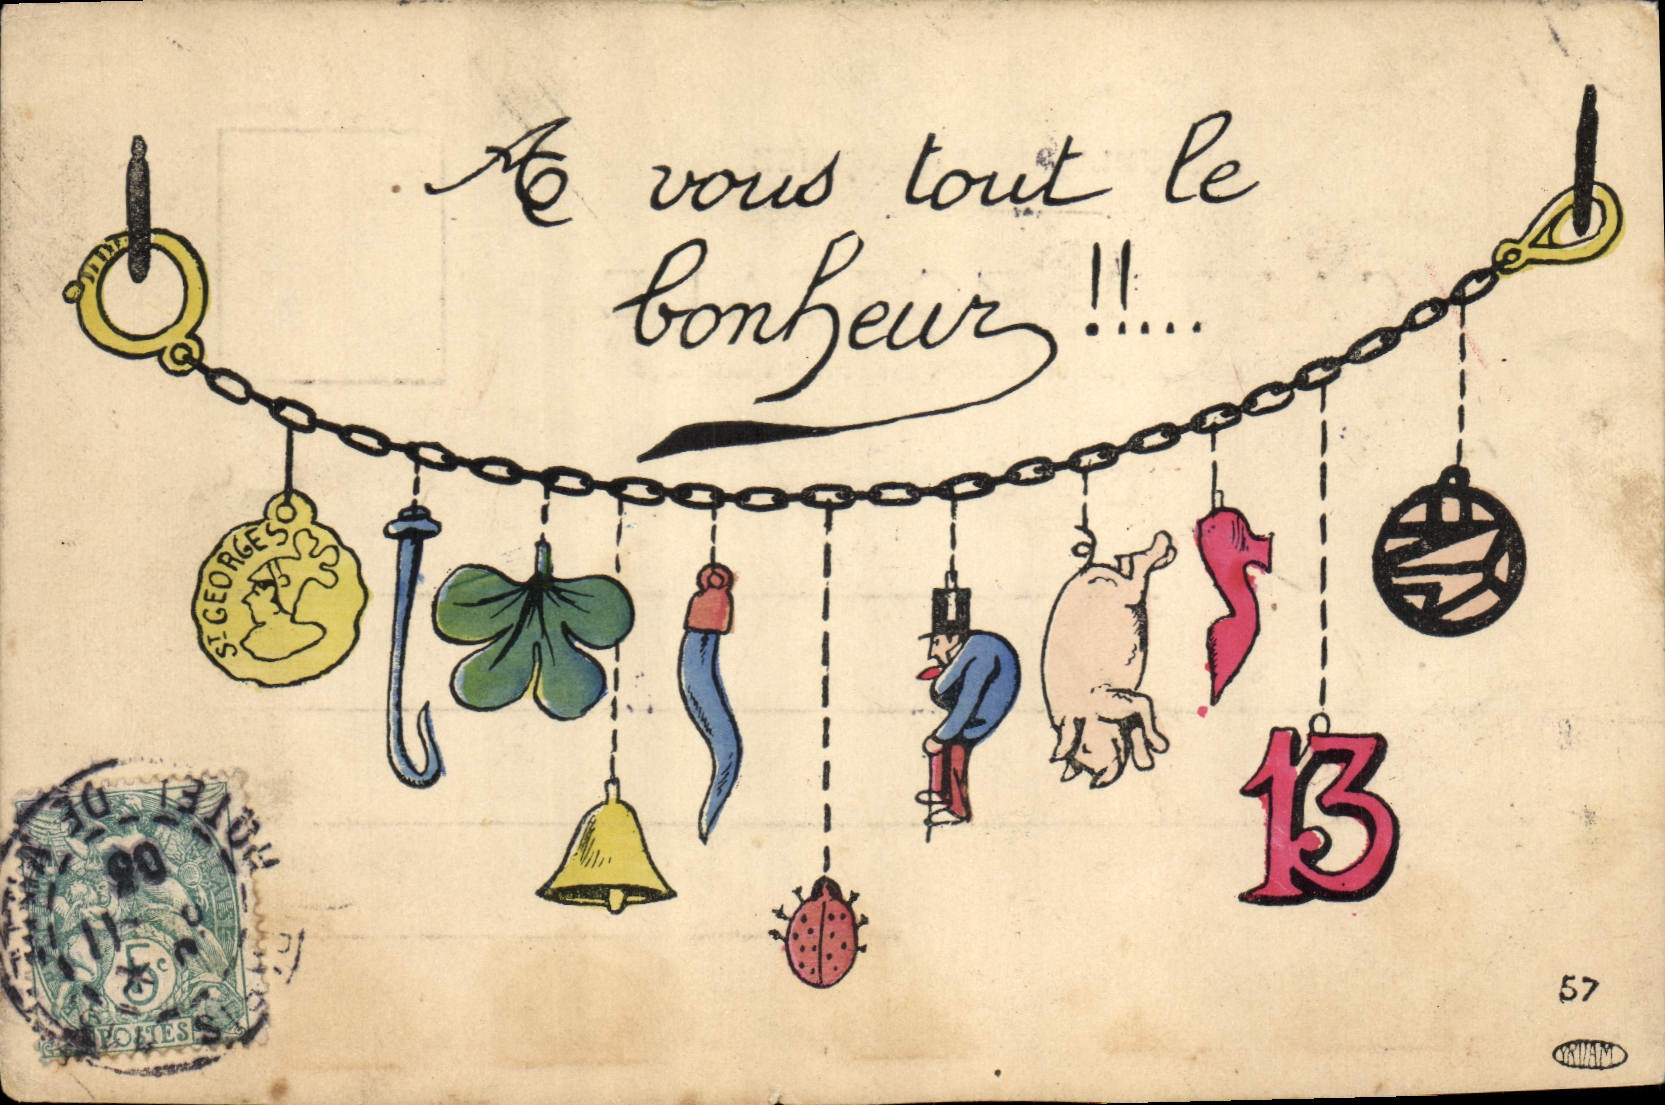 A vous tout le
bonheur !!.....
ST GEORGES
13
5c
POSTES
57